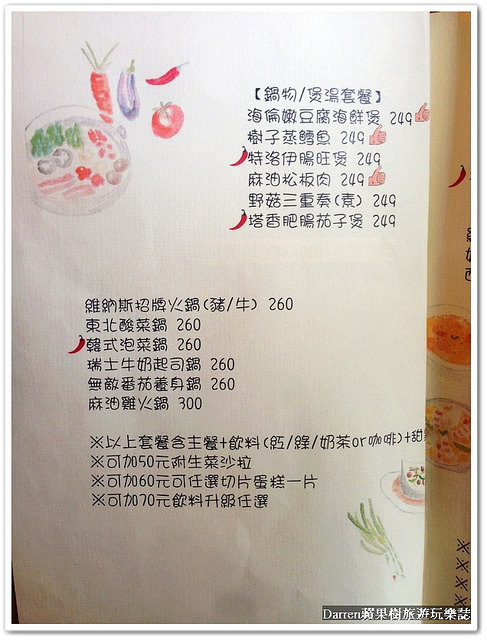 【鍋物/煲湯套餐】
海倫嫩豆腐海鮮煲 249
樹子蒸鱈魚 249
特洛伊腸旺煲 249
麻油松板肉 249
野菇三重奏(素) 249
塔香肥腸茄子煲 249
維納斯招牌火鍋(豬/牛) 260
東北酸菜鍋 260
韓式泡菜鍋 260
瑞士牛奶起司鍋 260
無敵番茄養身鍋 260
麻油雞火鍋 300
※以上套餐含主餐+飲料(紅/綠/奶茶or咖啡)+甜
※可加50元附生菜沙拉
※可加60元可任選切片蛋糕一片
※可加70元飲料升級任選
Darren蘋果樹旅遊玩樂誌